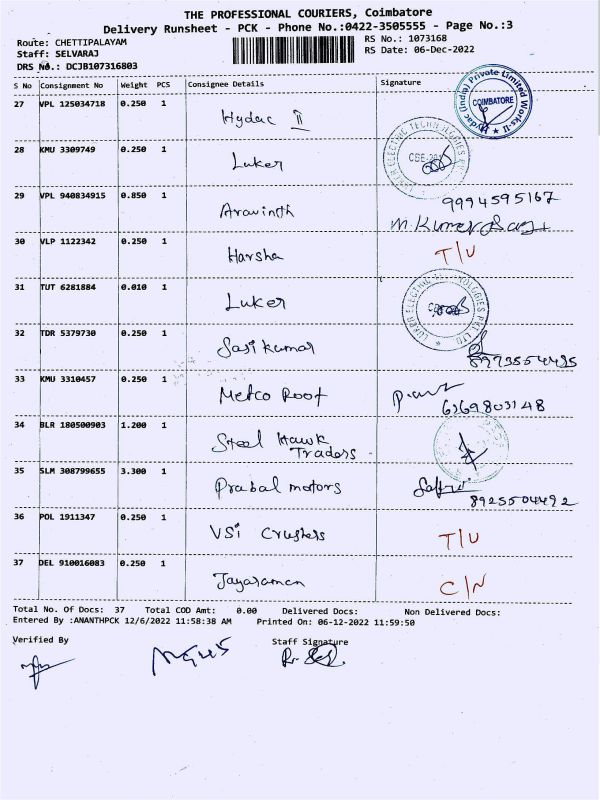 THE PROFESSIONAL COURIERS, Coimbatore
Delivery Runsheet - PCK - Phone No.:0422-3505555 - Page No.:3
Route: CHETTIPALAYAM RS No.: 1073168
Staff: SELVARAJ RS Date: 06-Dec-2022
DRS No.: DCJB107316803
S No Consignment No Weight PCS Consignee Details Signature
27 VPL 125034718 0.250 1 Hydac II
Hydac (India) Private Limited Works-II COIMBATORE
28 KMU 3309749 0.250 1 Luker
LUKER ELECTRIC TECHNOLOGIES CSE-
29 VPL 940834915 0.850 1 Aravinth 9994595167
30 VLP 1122342 0.250 1 Harsha T/U
31 TUT 6281884 0.010 1 Luker
LUKER ELECTRIC TECHNOLOGIES PVT LTD
32 TDR 5379730 0.250 1 Sasikumar
33 KMU 3310457 0.250 1 Metco Roof
34 BLR 180500903 1.200 1 Steel Hawk
Traders
35 SLM 308799655 3.300 1 Prabal motors 8925504492
36 POL 1911347 0.250 1 VSi Crushers T/U
37 DEL 910016083 0.250 1 Jayaraman C/N
Total No. Of Docs: 37 Total COD Amt: 0.00 Delivered Docs: Non Delivered Docs:
Entered By :ANANTHPCK 12/6/2022 11:58:38 AM Printed On: 06-12-2022 11:59:50
Verified By Staff Signature